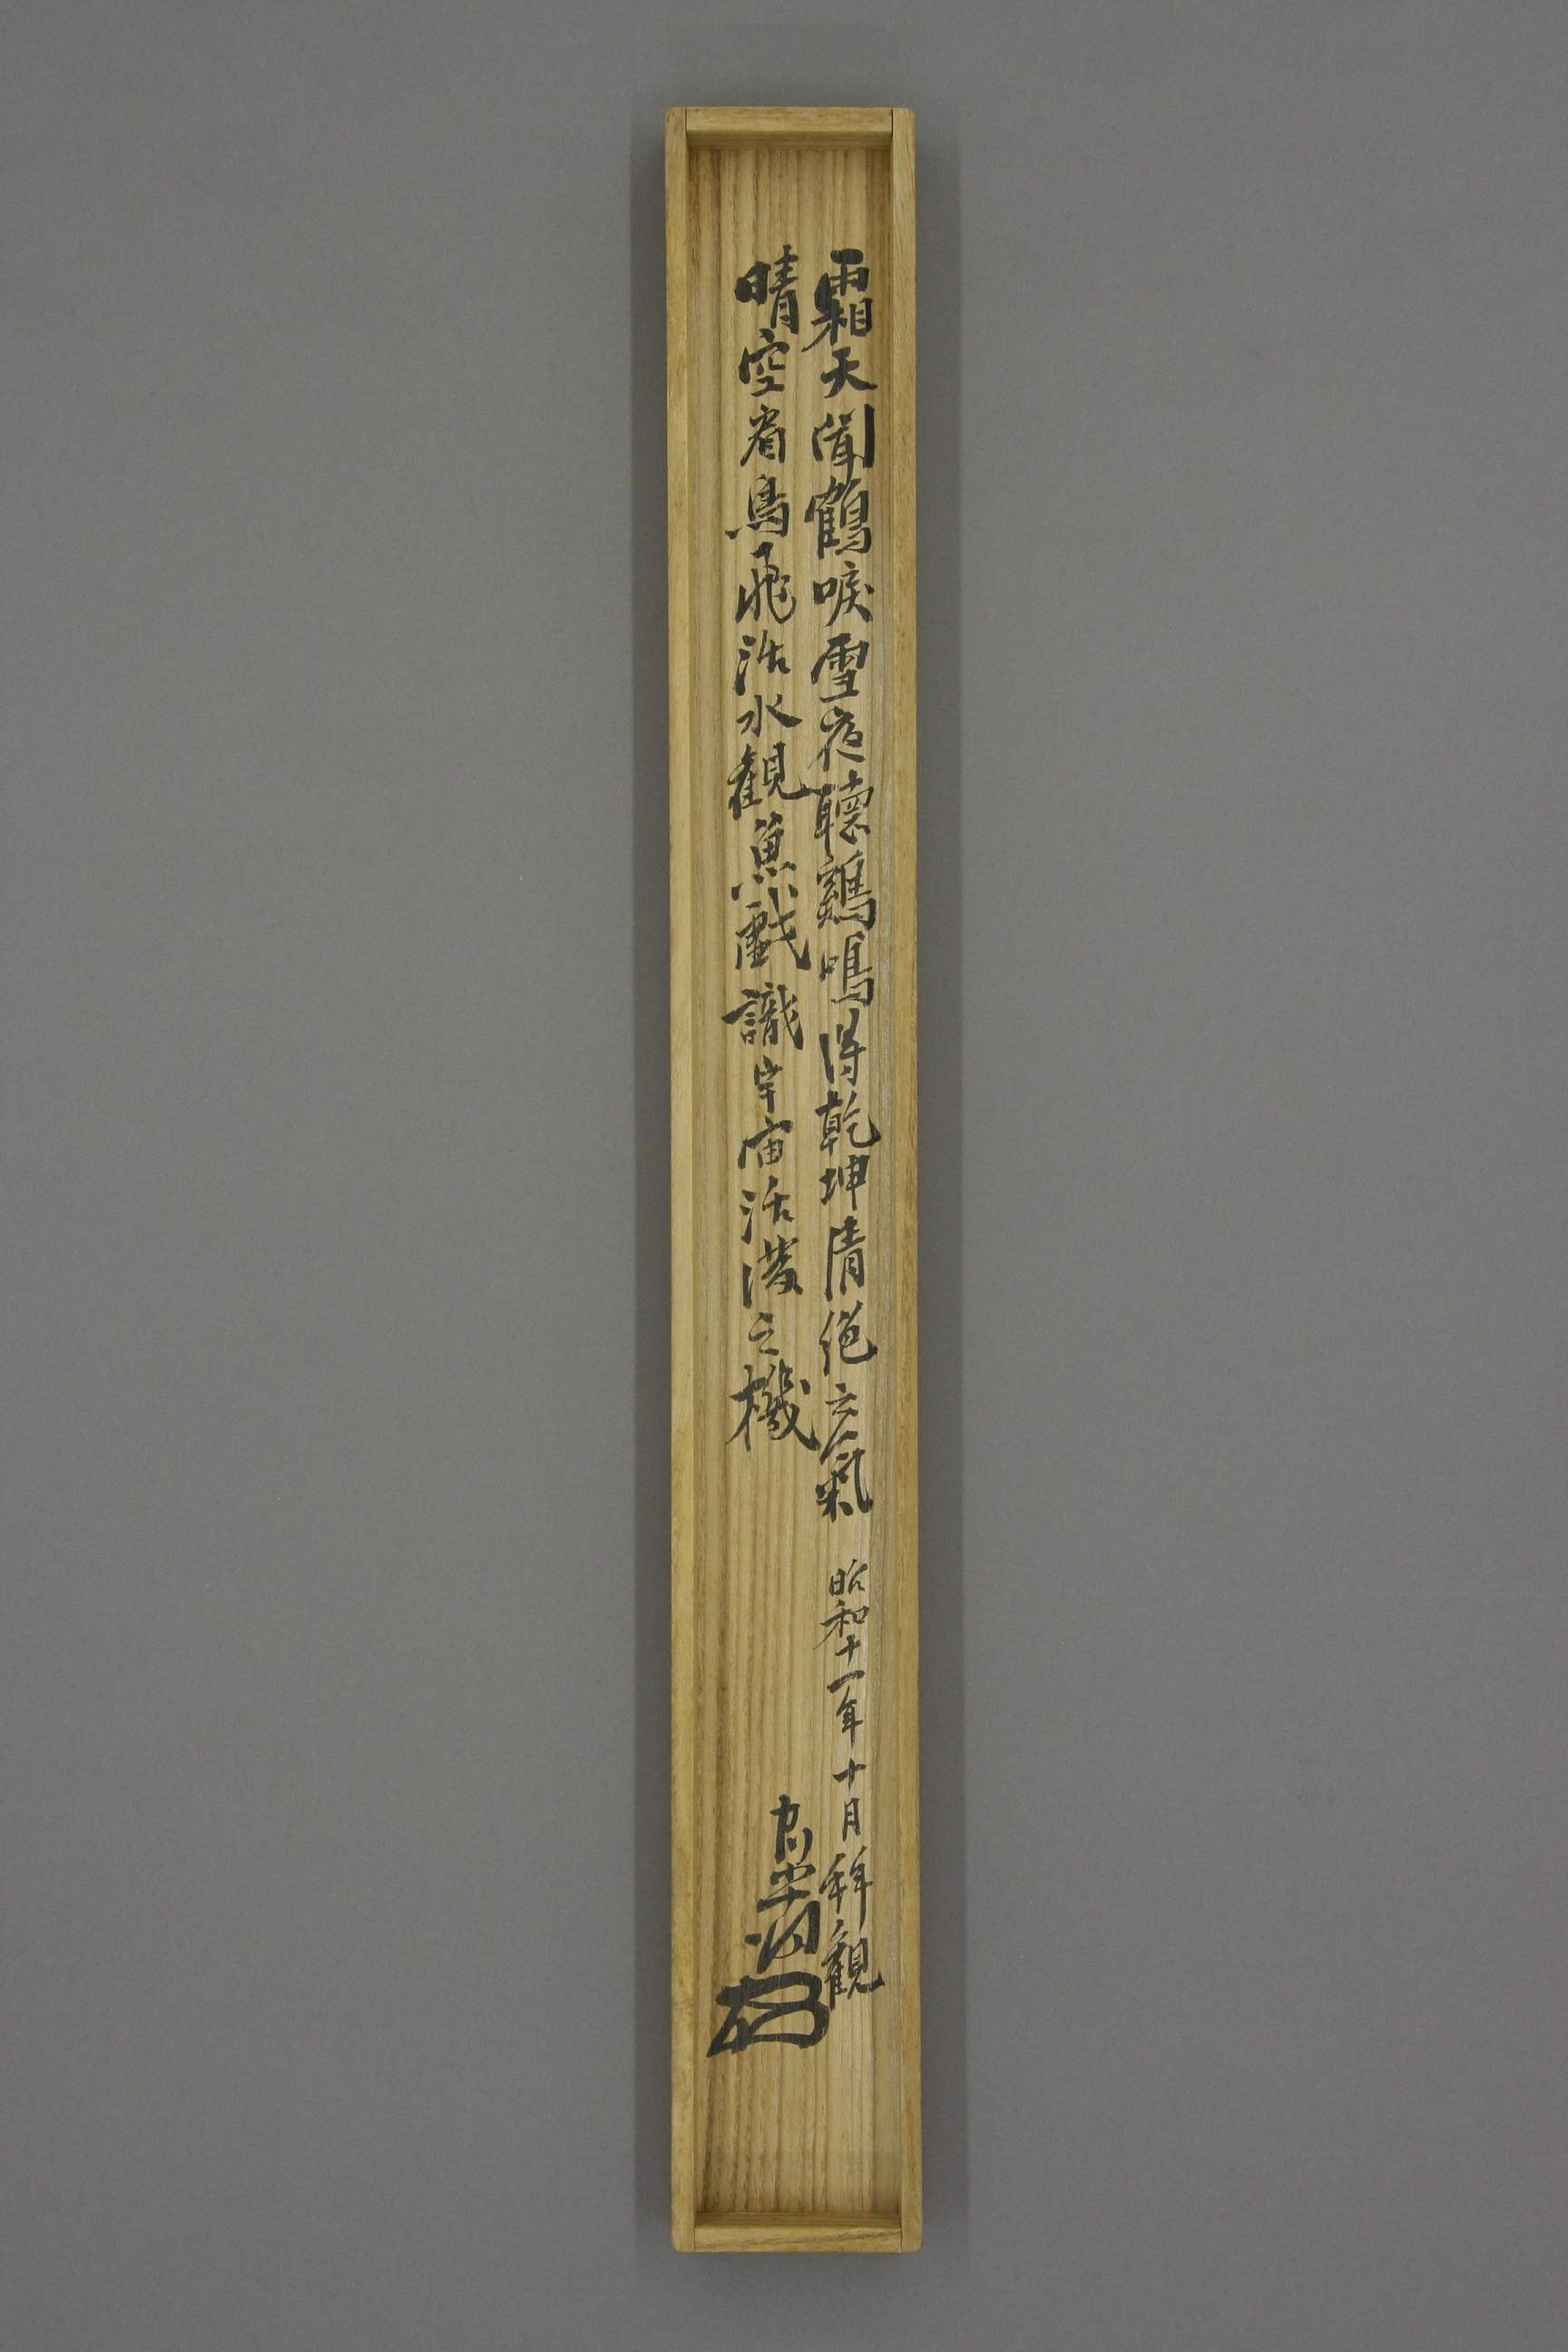 霜天聞鶴唳雪夜聴鷄鳴得乾坤清絶之氣
晴空看鳥飛活水觀魚戲識宇宙活潑之機
昭和十一年十月拜觀